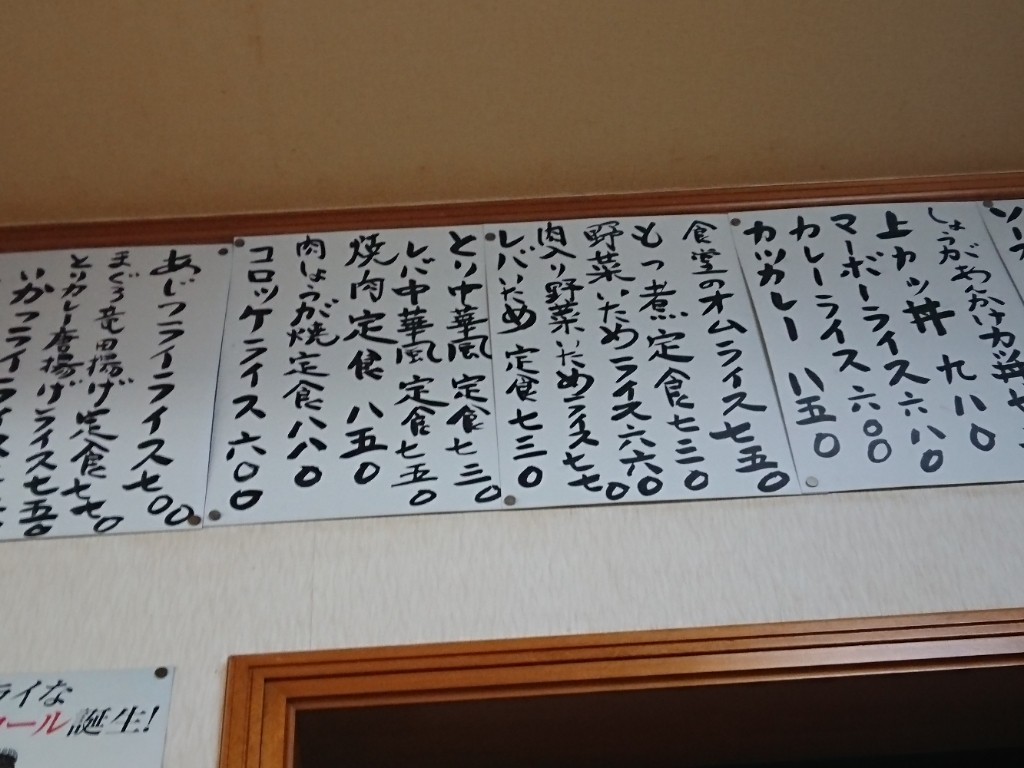 しょうがあんかけカツ丼 九八〇
上カツ丼 六八〇
マーボーライス 六〇〇
カレーライス
カツカレー 八五〇
食堂のオムライス 七五〇
もつ煮定食 七三〇
野菜いためライス 六六〇
肉入り野菜いためライス 七七〇
レバいため定食 七三〇
とり中華風定食 七三〇
レバ中華風定食 七五〇
焼肉定食 八五〇
肉しょうが焼定食 八八〇
コロッケライス 六〇〇
あじフライライス 七〇〇
まぐろ竜田揚げ定食 七七〇
とりカレー唐揚げライス 七五〇
いかフライライス
ライな
ール誕生!